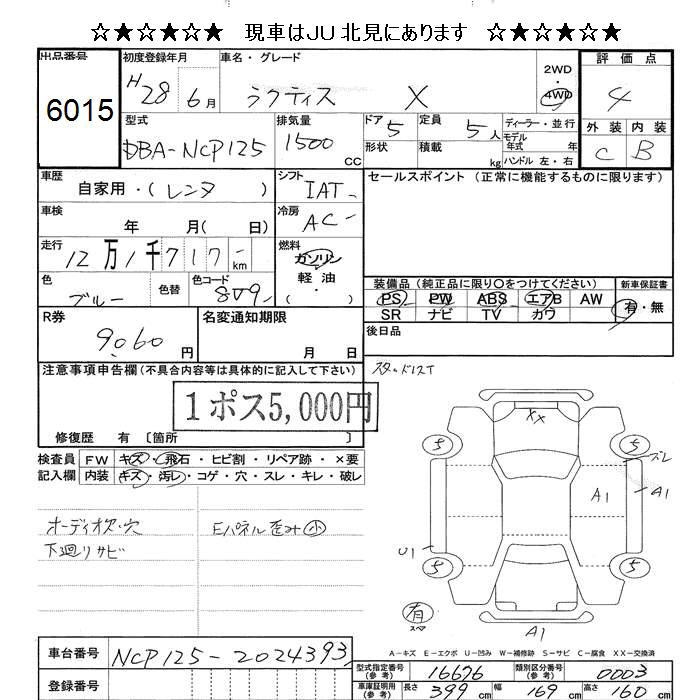 ☆★☆★☆★☆ 現車はJU北見にあります ☆★☆★☆★☆
出品番号 初度登録年月 車名・グレード 2WD 評価点
6015 H28 6月 ラクティス X 4WD 4
型式 排気量 ドア 5 定員 5人 ディーラー・並行 外装 内装
DBA-NCP125 1500cc 形状 積載 kg モデル年式 年 C B
ハンドル 左・右
車歴 自家用・(レンタ ) シフト IAT セールスポイント (正常に機能するものに限ります)
車検 年 月( 日) 冷房 AC
走行 12万1千717km 燃料 ガソリン
軽油
・( )
色 ブルー 色替 色コード 8U9 装備品(純正品に限り〇をつけてください) 新車保証書
PS PW ABS エアB AW 有・無
SR ナビ TV カワ
R券 9060円 名変通知期限 月 日 後日品
注意事項申告欄(不具合内容等は具体的に記入して下さい)
1ポス5,000円
修復歴 有 〔箇所 〕
検査員 FW キズ・飛石・ヒビ割・リペア跡・×要
記入欄 内装 キズ・汚レ・コゲ・穴・スレ・キレ・破レ
XX
5 5
ズレ
A1 A1
U1
5 5
有 スペア
A1
オーディオ欠・穴 Eパネル歪み小
下廻りサビ
A-キズ E-エクボ U-凹み W-補修跡 S-サビ C-腐食 XX-交換済
車台番号 NCP125-2024393
登録番号
型式指定番号(参考) 16676 類別区分番号(参考) 0003
車庫証明用(参考) 長さ 399cm 幅 169cm 高さ 160cm